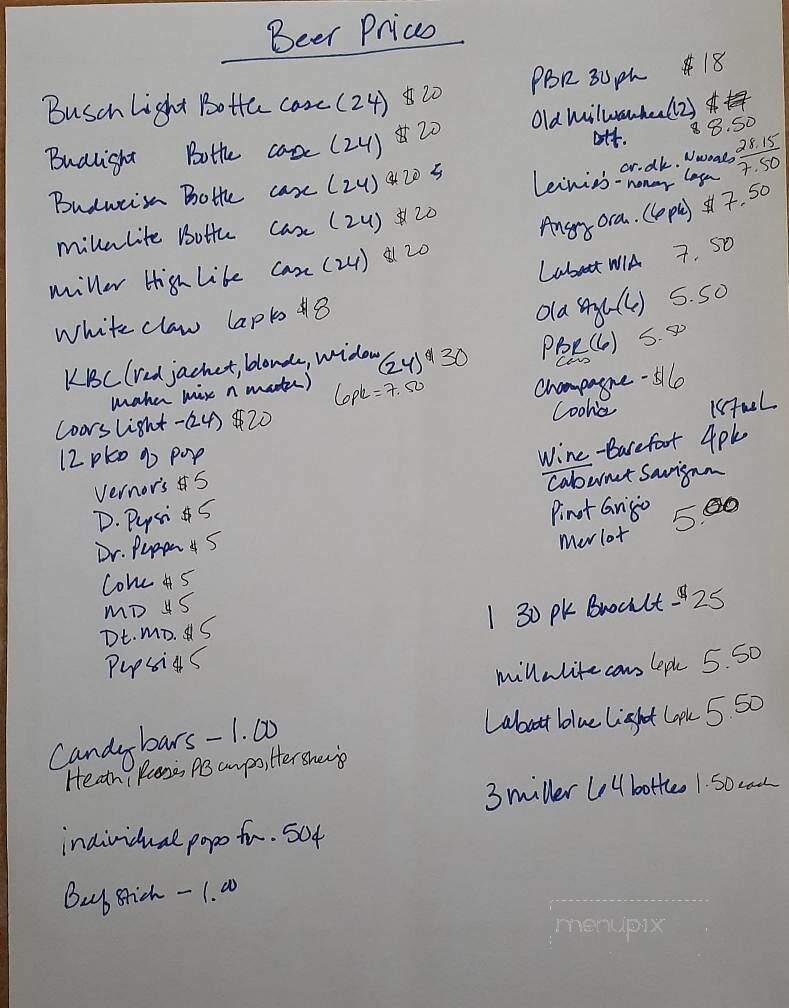 Beer Prices
Busch Light Bottle case (24) $20
Budlight Bottle case (24) $20
Budweiser Bottle case (24) $20
Millerlite Bottle case (24) $20
Miller High Life case (24) $20
White claw 6 pks $8
KBC (red jacket, blonde, widow
maker mix n match) (24) $30
6pk = 7.50
Coors light - (24) $20
12 pks of pop
Vernor's $5
D. Pepsi $5
Dr. Pepper $5
Coke $5
MD $5
Dt. MD. $5
Pepsi $5
Candy bars - 1.00
Heath, Reese's PB cups, Hershey's
individual pops for .50¢
Beef stick - 1.00
PBR 30 pk $18
Old Milwaukee (12) $
btl. $8.50
Leinie's - cr. dk. 28.15
honey lager 7.50
Angry Orch. (6pk) $7.50
Labatt 7.50
Old Style (6) 5.50
PBR (6) 5.50
cans
Champagne - $6
Cooks
187 mL
Wine - Barefoot 4pks
Cabernet Sauvignon
Pinot Grigio
Merlot 5.00
1 30 pk Busch Lt - $25
Millerlite cans 6pk 5.50
Labatt blue Light 6pk 5.50
3 miller 64 bottles 1.50 each
menupix